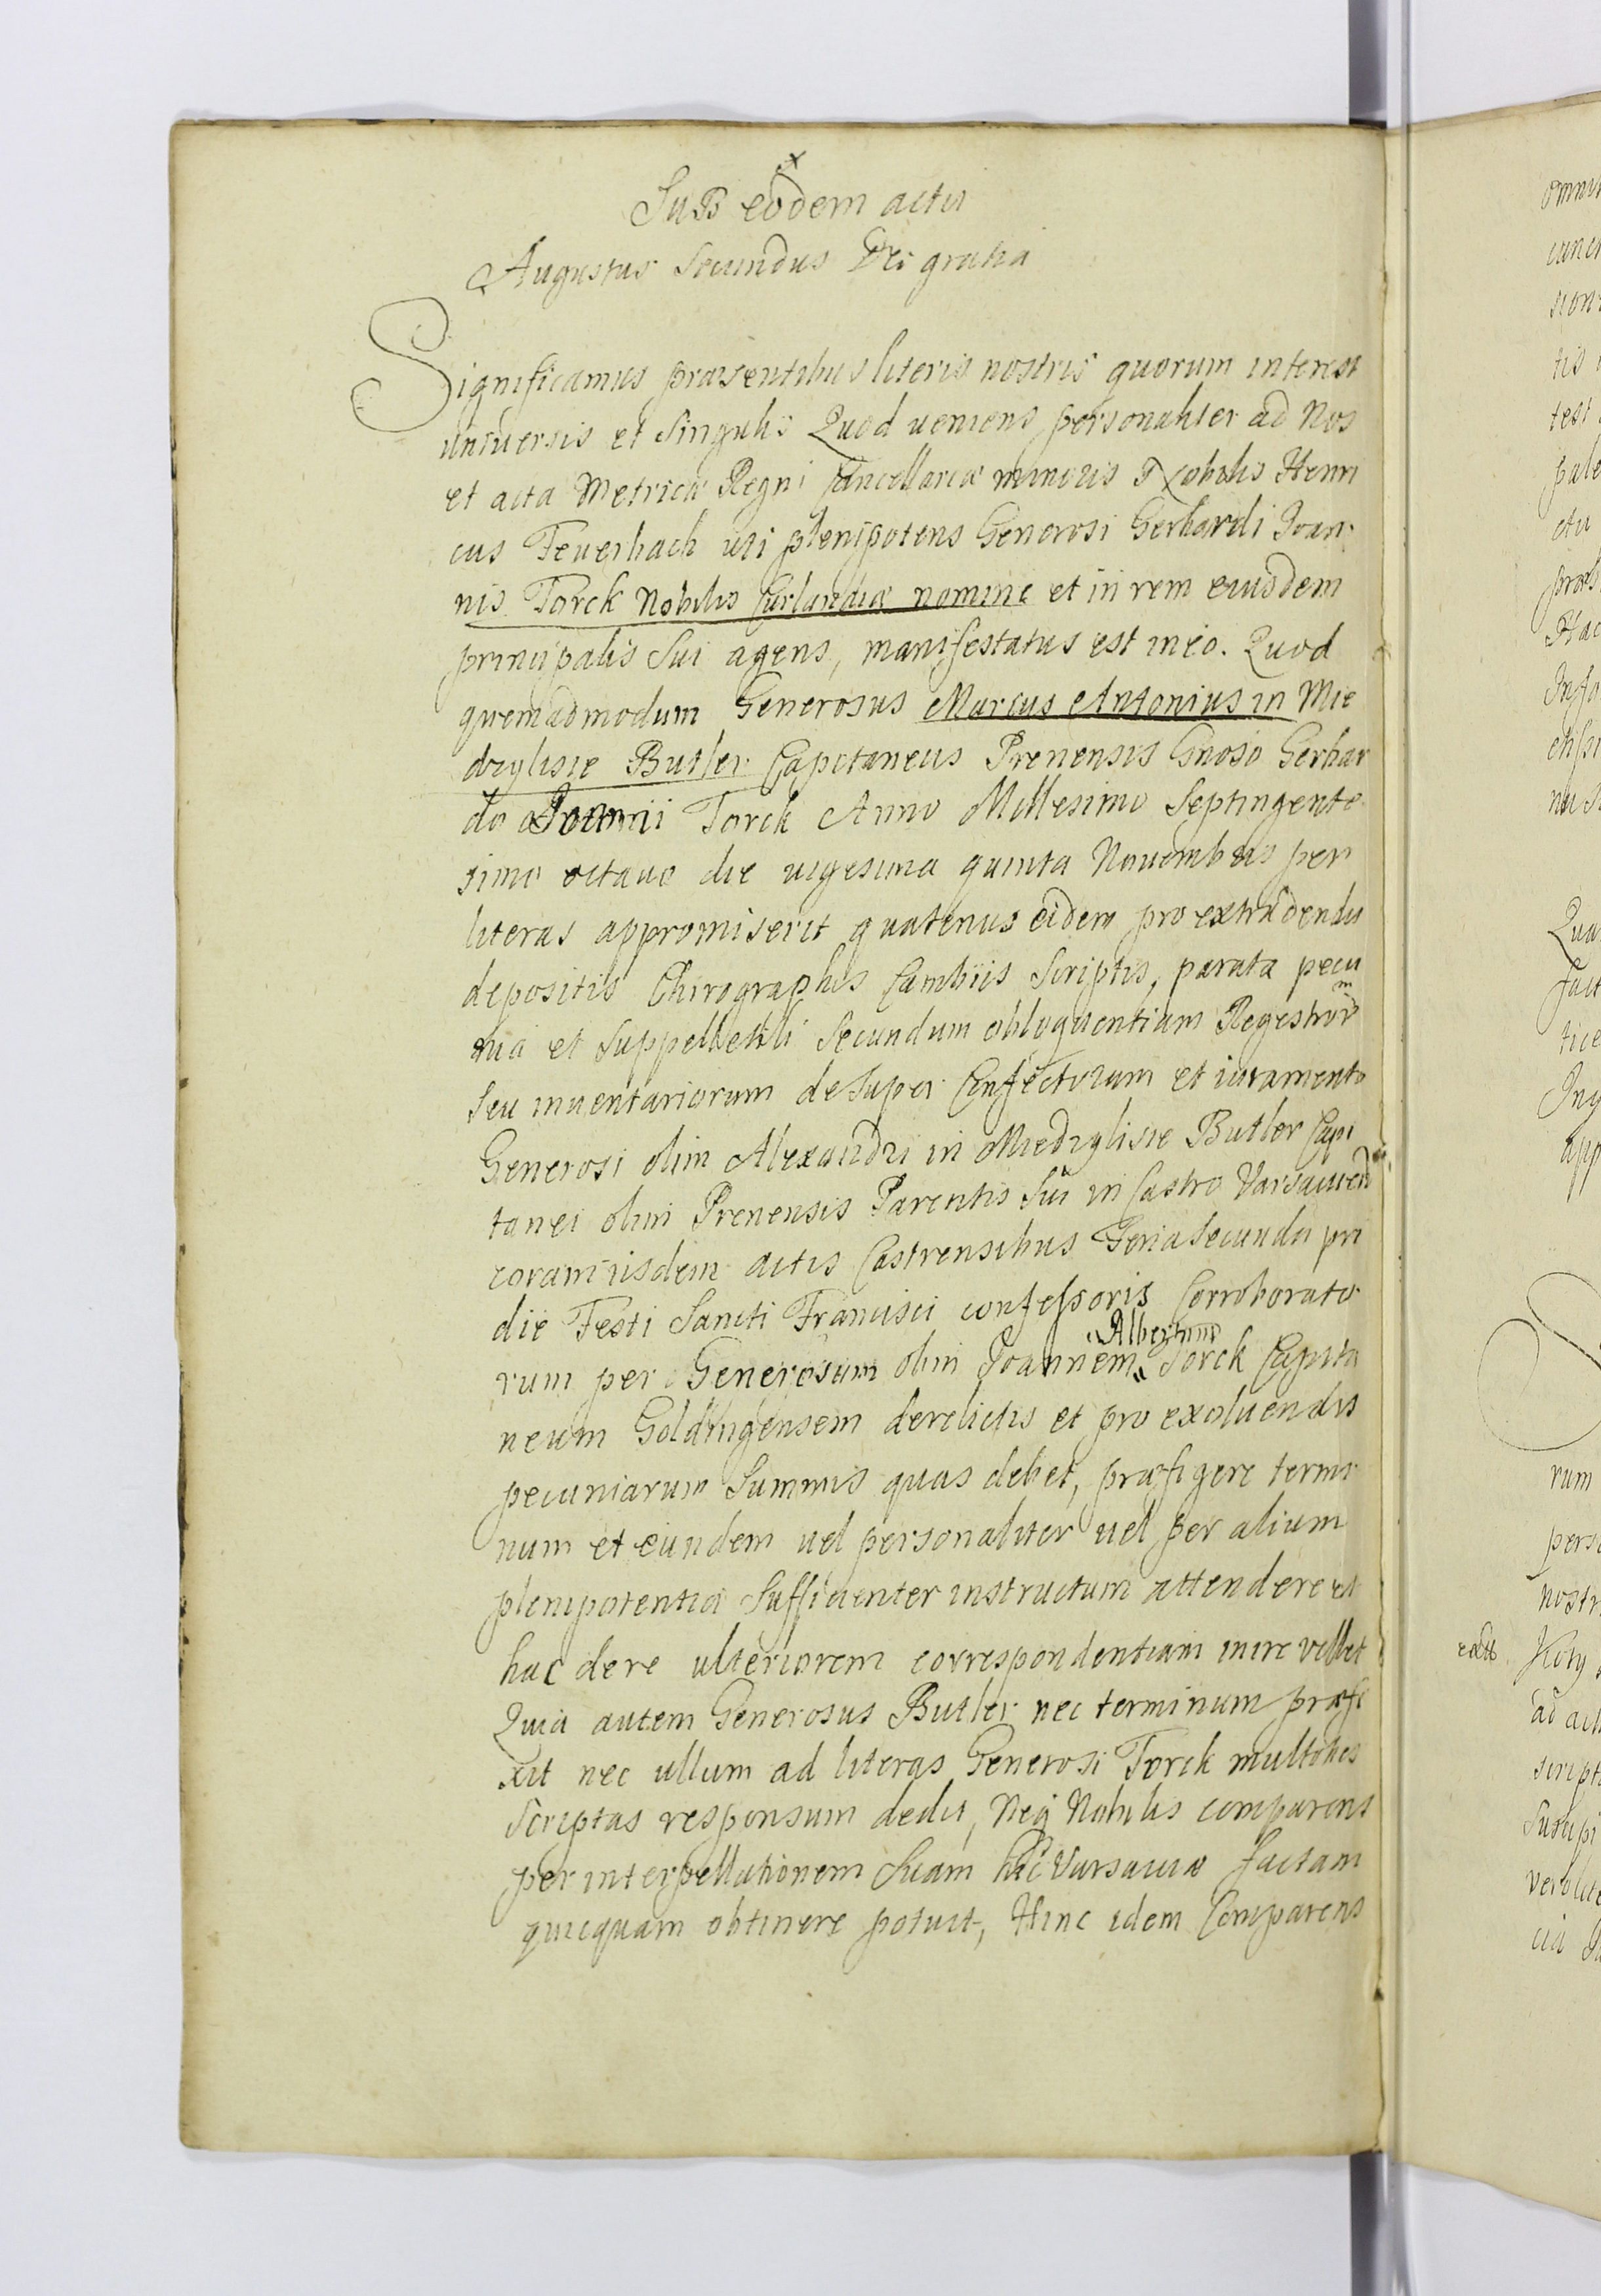 Sub eodem actu
Augustus Secundus Dei gratia
Significamus praesentibus literis nostris quorum interest
universis et singulis Quod veniens personaliter ad Nos
et acta Metricae Regni Cancellariae minoris Nobilis Henri
cus Feuerbach uti plenipotens Generosi Gerhardi Joan
nis Torck Nobilis Curlandiae nomine et in rem eiusdem
principalis sui agens, manifestatus est in eo. Quod
quemadmodum Generosus Marcus Antonius in Mie
dzylisie Butler Capitaneus Prenensis Gnoso Gerhar
do Joanni Torck Anno Millesimo Septingente
simo octavo die vigesima quinta Novembris per
literas appromiserit quatenus eidem pro extradendis
depositis Chirographis Cambiis Scriptis, parata pecu
nia et suppellectili secundum obloquentiam Regestrorum
seu inventariorum desuper confectorum et iuramento
Generosi olim Alexandri in Miedzylisie Butler Capi
tanei olim Prenensis Parentis sui in Castro Varsavien
coram iisdem actis Castrensibus Feria secunda pri
die Festi Sancti Francisci confessoris Corroborato
rum per Generosum olim Joannem Albertum Torck Capita
neum Goldingensem derelictis et pro exolvendis
pecuniarum summis quas debet, praefigere termi
num et eundem vel personaliter vel per alium
plenipotentia sufficienter instructum attendere et
hac de re ulteriorem correspondentiam inire vellet
Quia autem Generosus Butler nec terminum praefi
xit nec ullum ad literas Generosi Torck multoties
scriptas responsum dedit, Neq Nobilis comparens
per interpellationem suam hic Varsaviae factam
quicquam obtinere potuit, Hinc idem Comparens